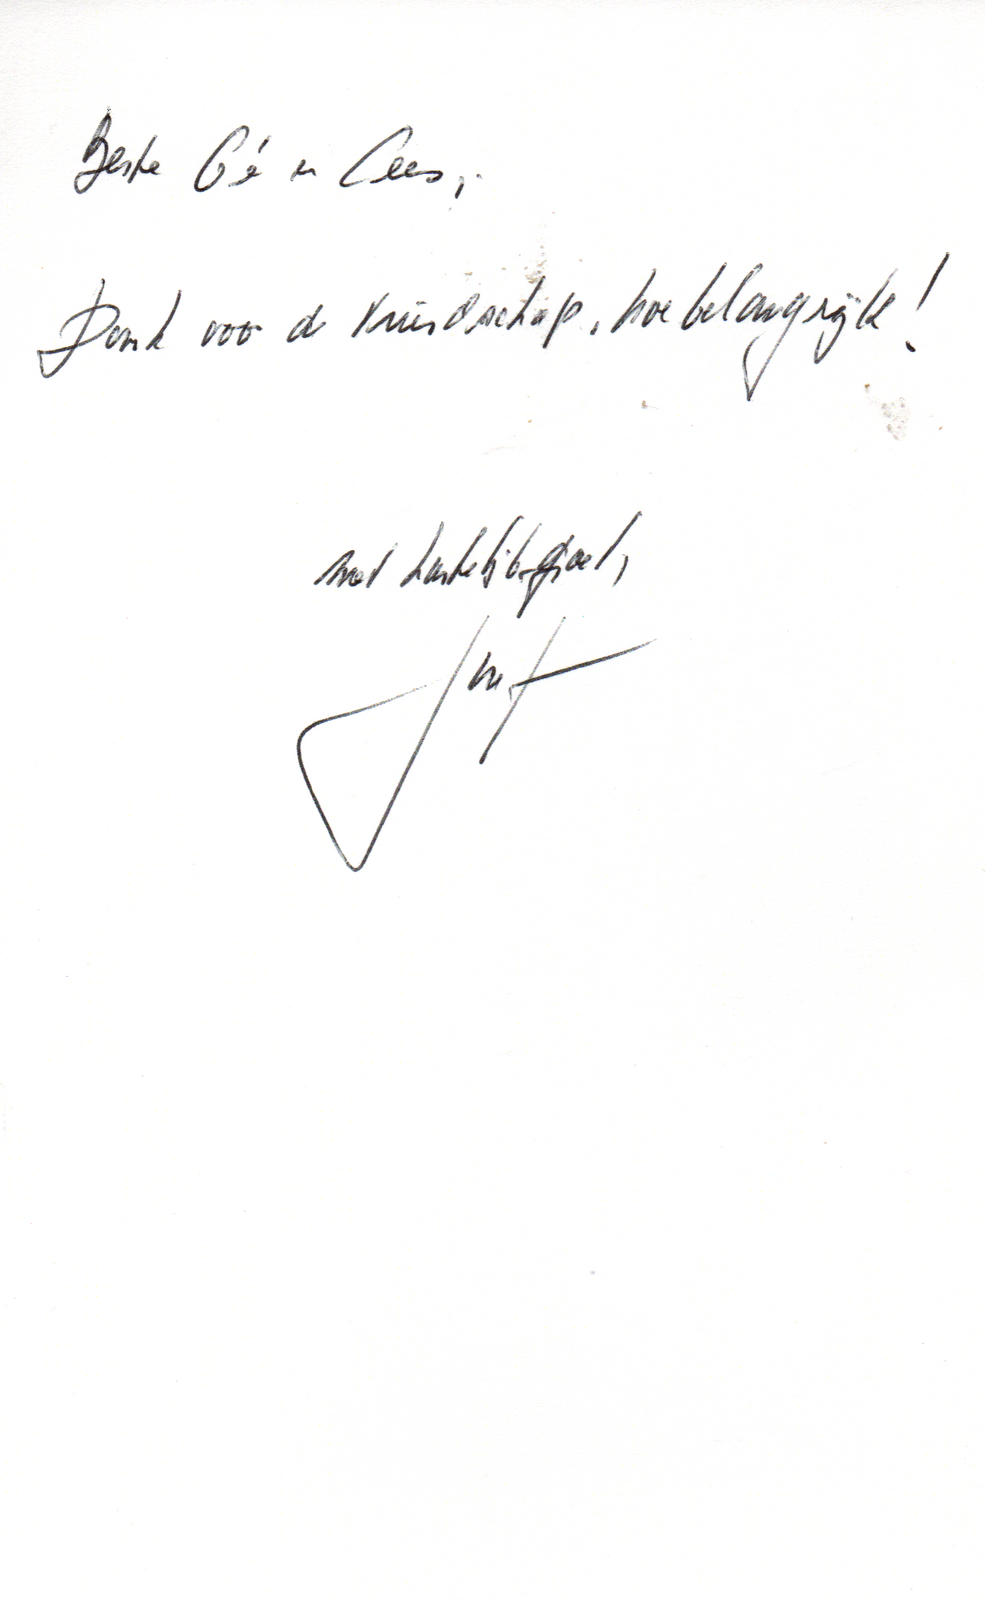 Beste Gé en Cees,
Dank voor de vriendschap, hoe belangrijk!
met hartelijke groet,